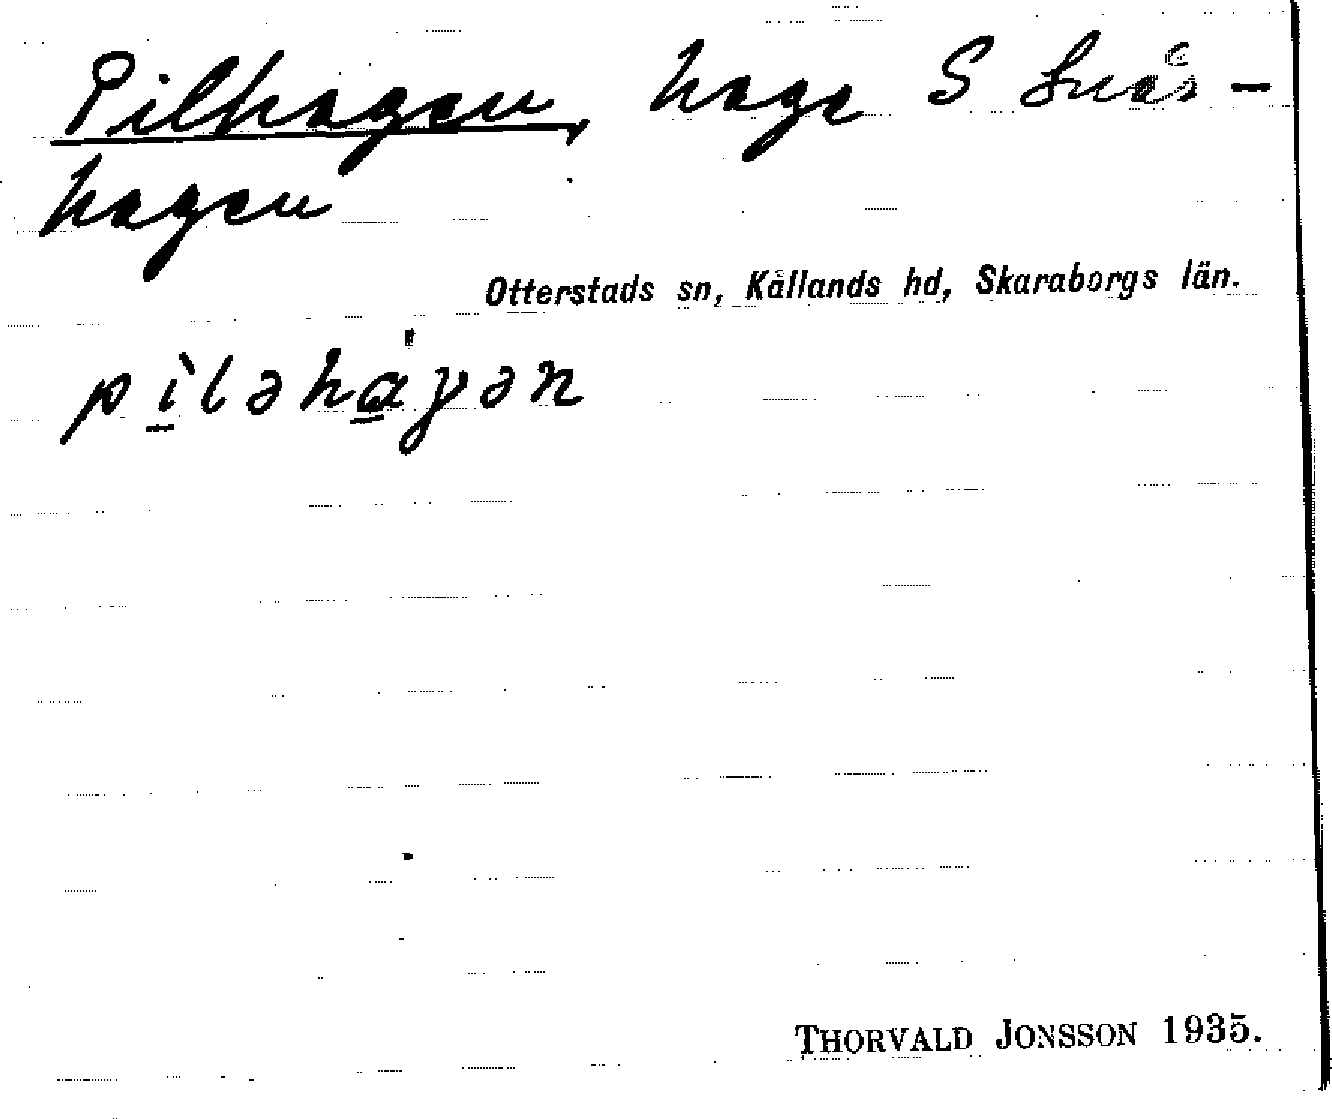 Pilhagen, hage S Snås-
hagen
Otterstads sn, Kållands hd, Skaraborgs län.
pìləhá'γən
THORVALD JONSSON 1935.